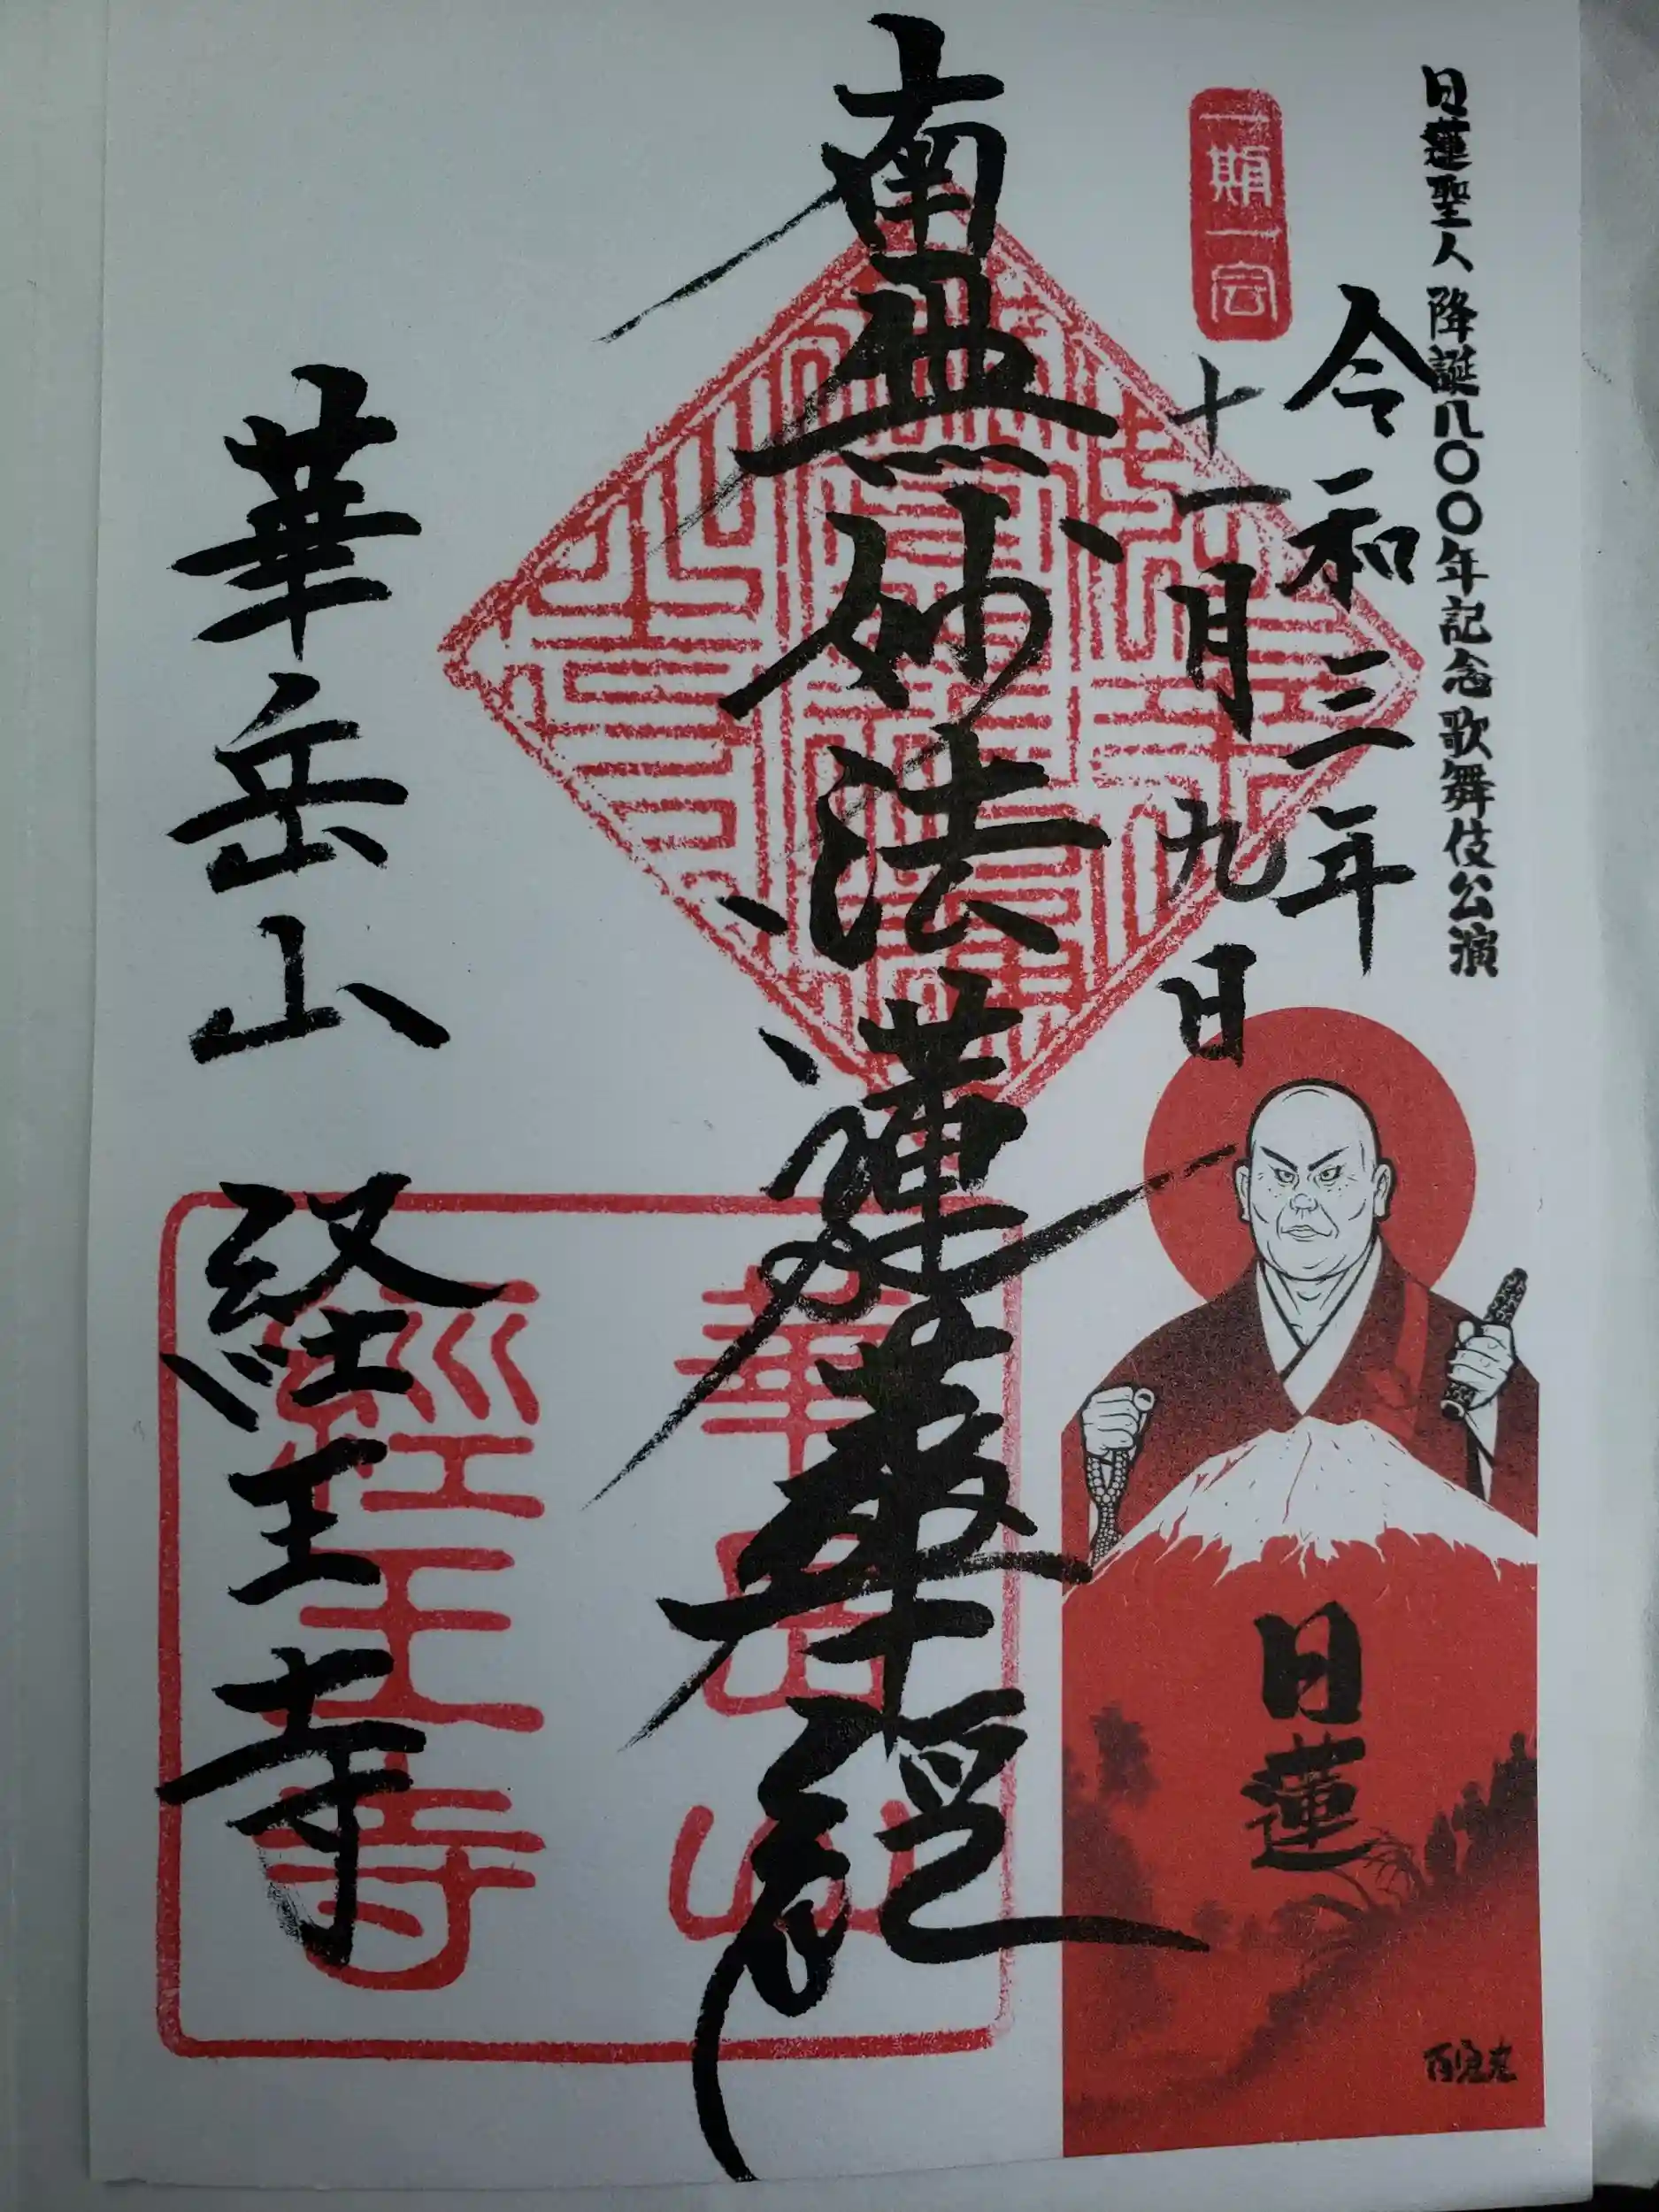 日蓮聖人降誕八〇〇年記念歌舞伎公演
令和三年
十一月九日
一期一会
南無妙法蓮華経
華岳山
經王寺
華岳山 経王寺
日蓮